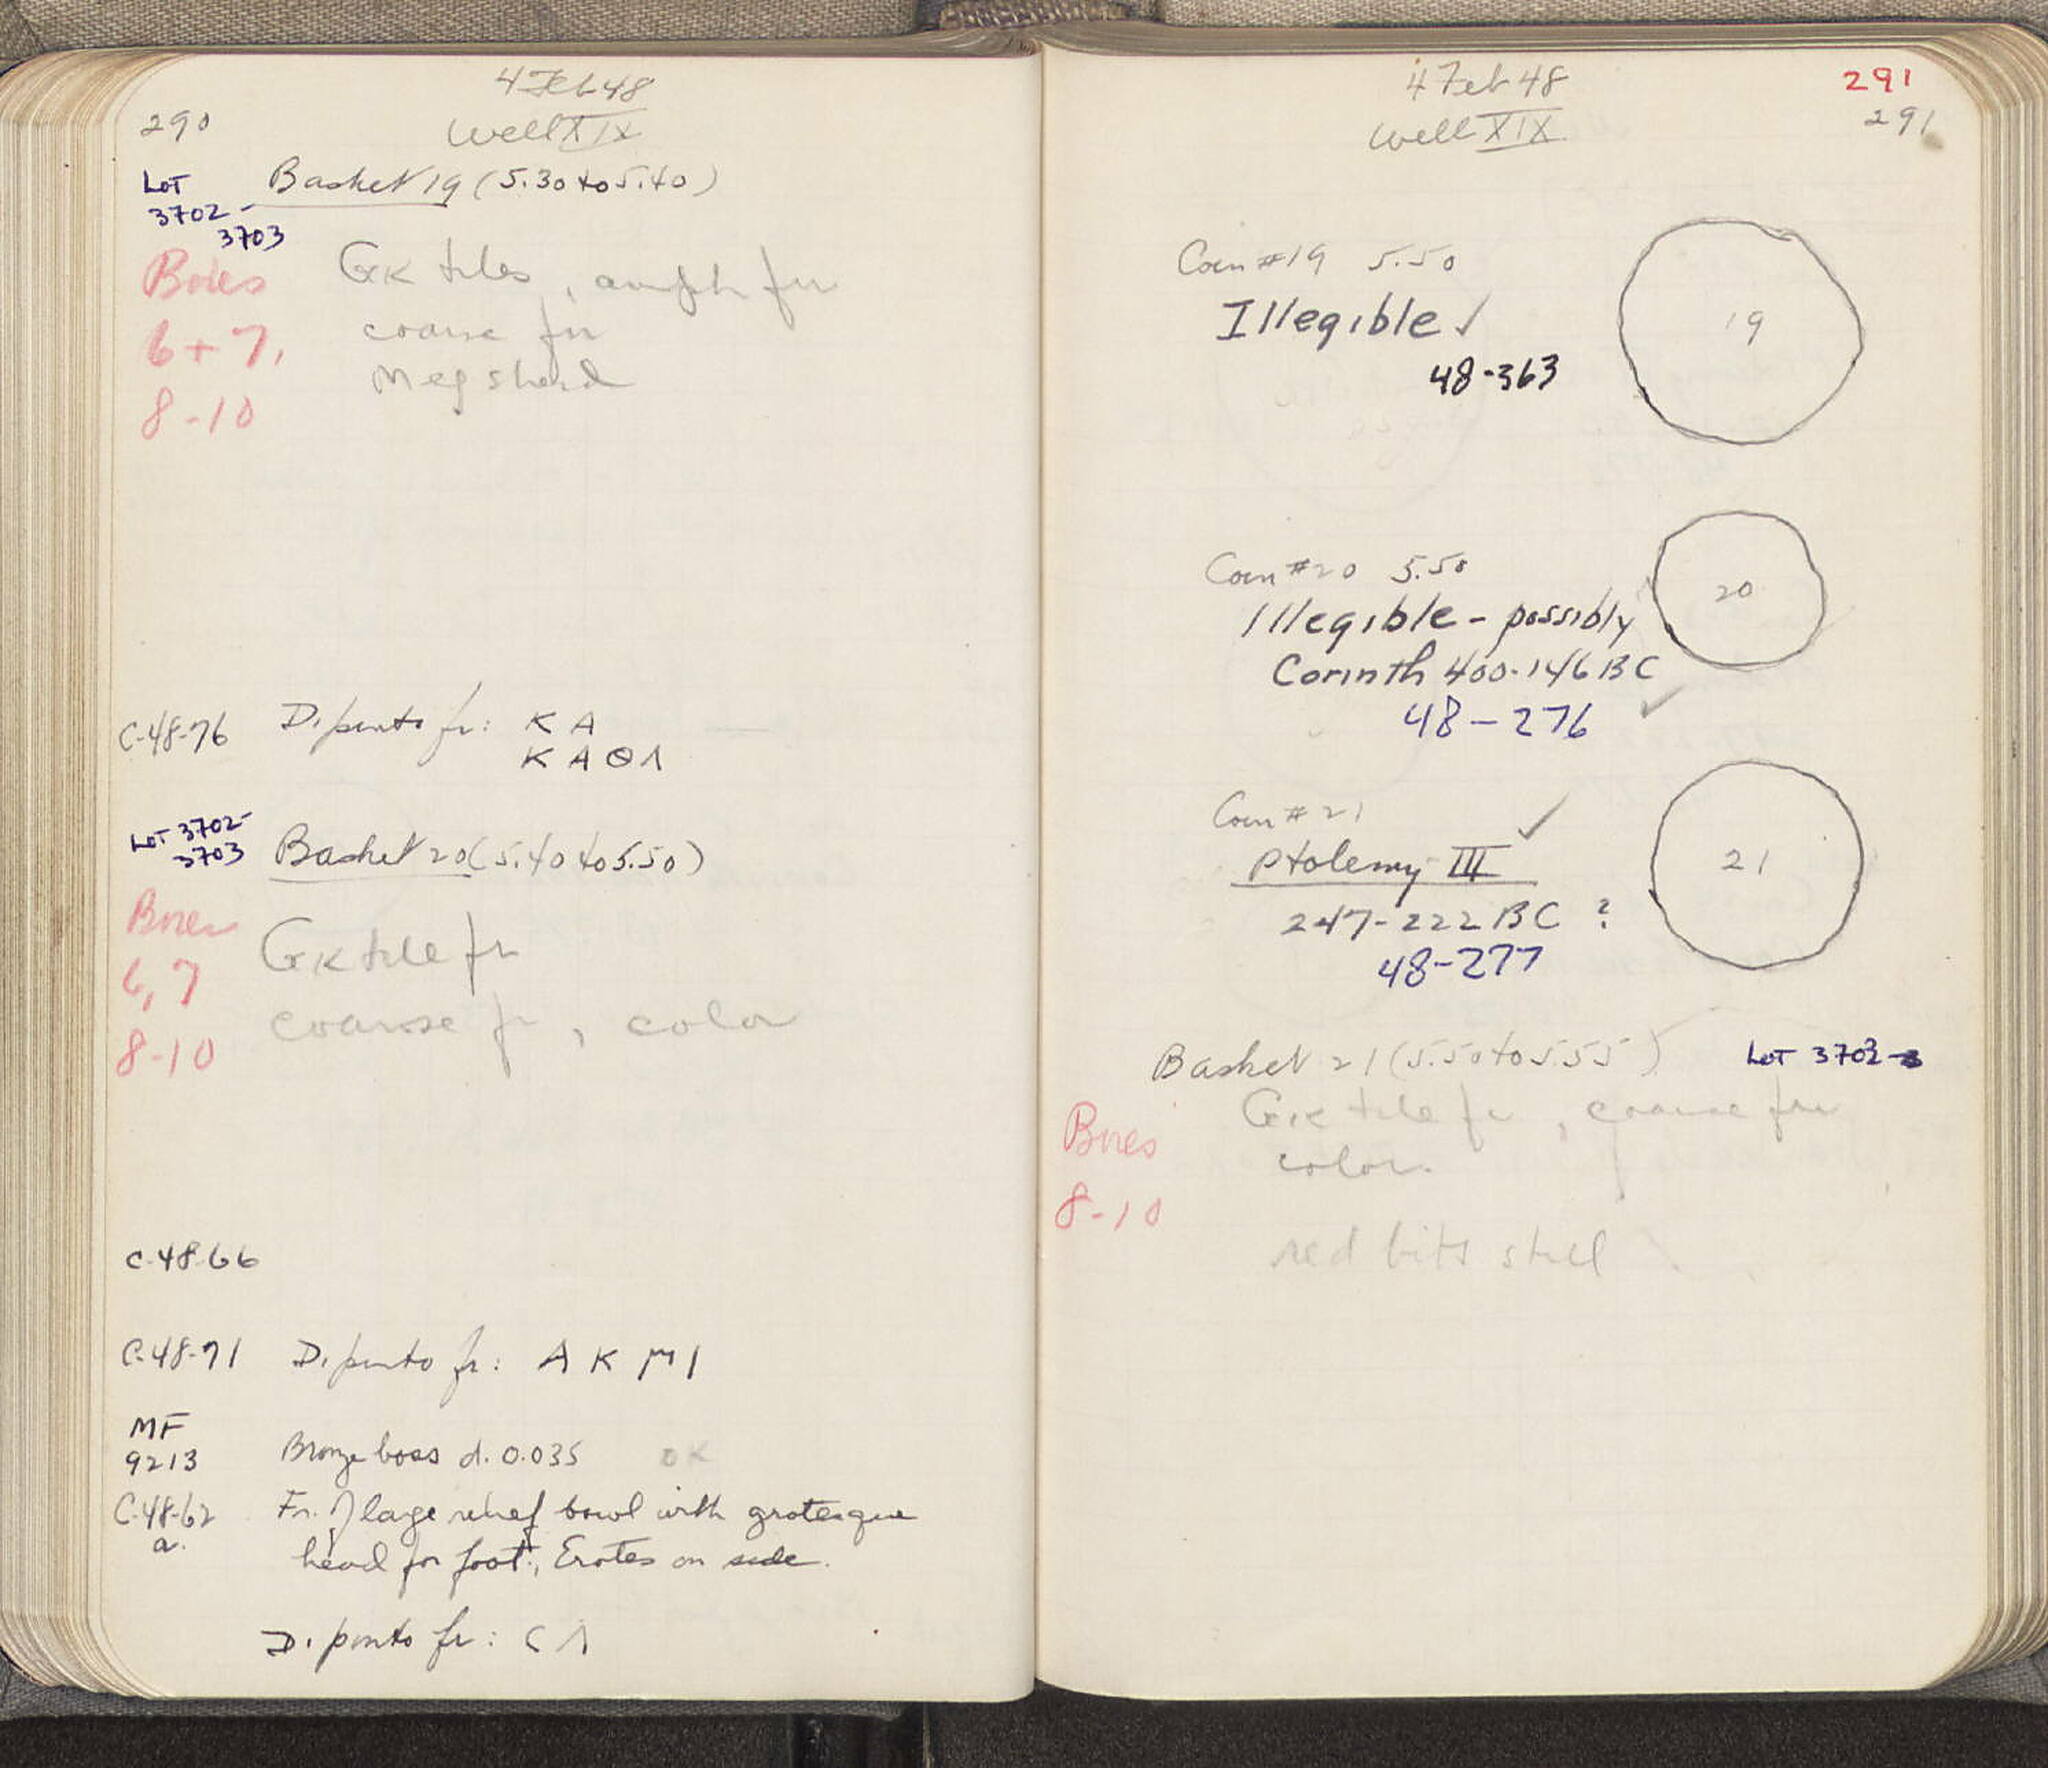 4 Feb 48
290
Well XIX
Lot
3702-
3703
Basket 19 (5.30 to 5.40)
Boxes
6+7,
8-10
Gk tiles, amph frr
coarse frr
Meg sherd
C-48-76
Dipinto fr: K A
K A Θ Λ
Lot 3702-
3703
Basket 20 (5.40 to 5.50)
Boxes
6, 7
8-10
Gk tile fr
coarse fr, color
C-48-66
C-48-71
Dipinto fr: A K M I
MF
9213
Bronze boss d. 0.035 OK
C-48-62
a.
Fr. of large relief bowl with grotesque
head for foot; Erotes on side.
Dipinto fr: C Λ
4 Feb 48
291
291
Well XIX
Coin #19 5.50
Illegible ✓
48-363
19
Coin #20 5.50
Illegible - possibly
Corinth 400-146 BC
48-276 ✓
20
Coin #21 ✓
Ptolemy III
247-222 BC ?
48-277
21
Basket 21 (5.50 to 5.55)
Lot 3702-3
Boxes
8-10
Gk tile fr, coarse frr
color.
red bits still